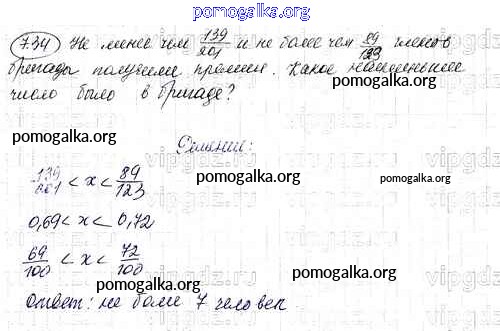 pomogalka.org
7.34 Не менее чем 139/201 и не более чем 89/123 членов
бригады получили премии. Какое наименьшее
число было в бригаде?
pomogalka.org
pomogalka.org
Решение:
139/201 < x < 89/123
pomogalka.org
pomogalka.org
0,69 < x < 0,72
69/100 < x < 72/100
pomogalka.org
Ответ: не более 7 человек.
pomogalka.org